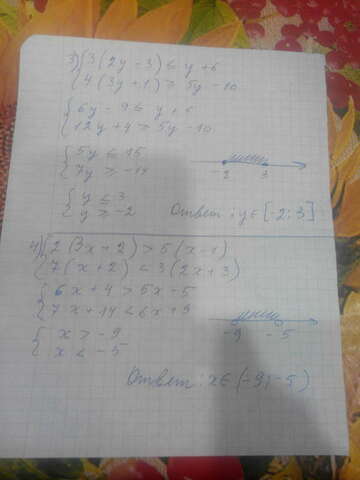 3) { 3(2y-3) ≤ y+6
4(3y+1) ≥ 5y-10
{ 6y-9 ≤ y+6
12y+4 ≥ 5y-10
{ 5y ≤ 15
7y ≥ -14
-2 3
{ y ≤ 3
y ≥ -2
Ответ: y∈[-2;3]
4) { 2(3x+2) > 5(x-1)
7(x+2) < 3(2x+3)
{ 6x+4 > 5x-5
7x+14 < 6x+9
-9 -5
{ x > -9
x < -5
Ответ: x∈(-9;-5)